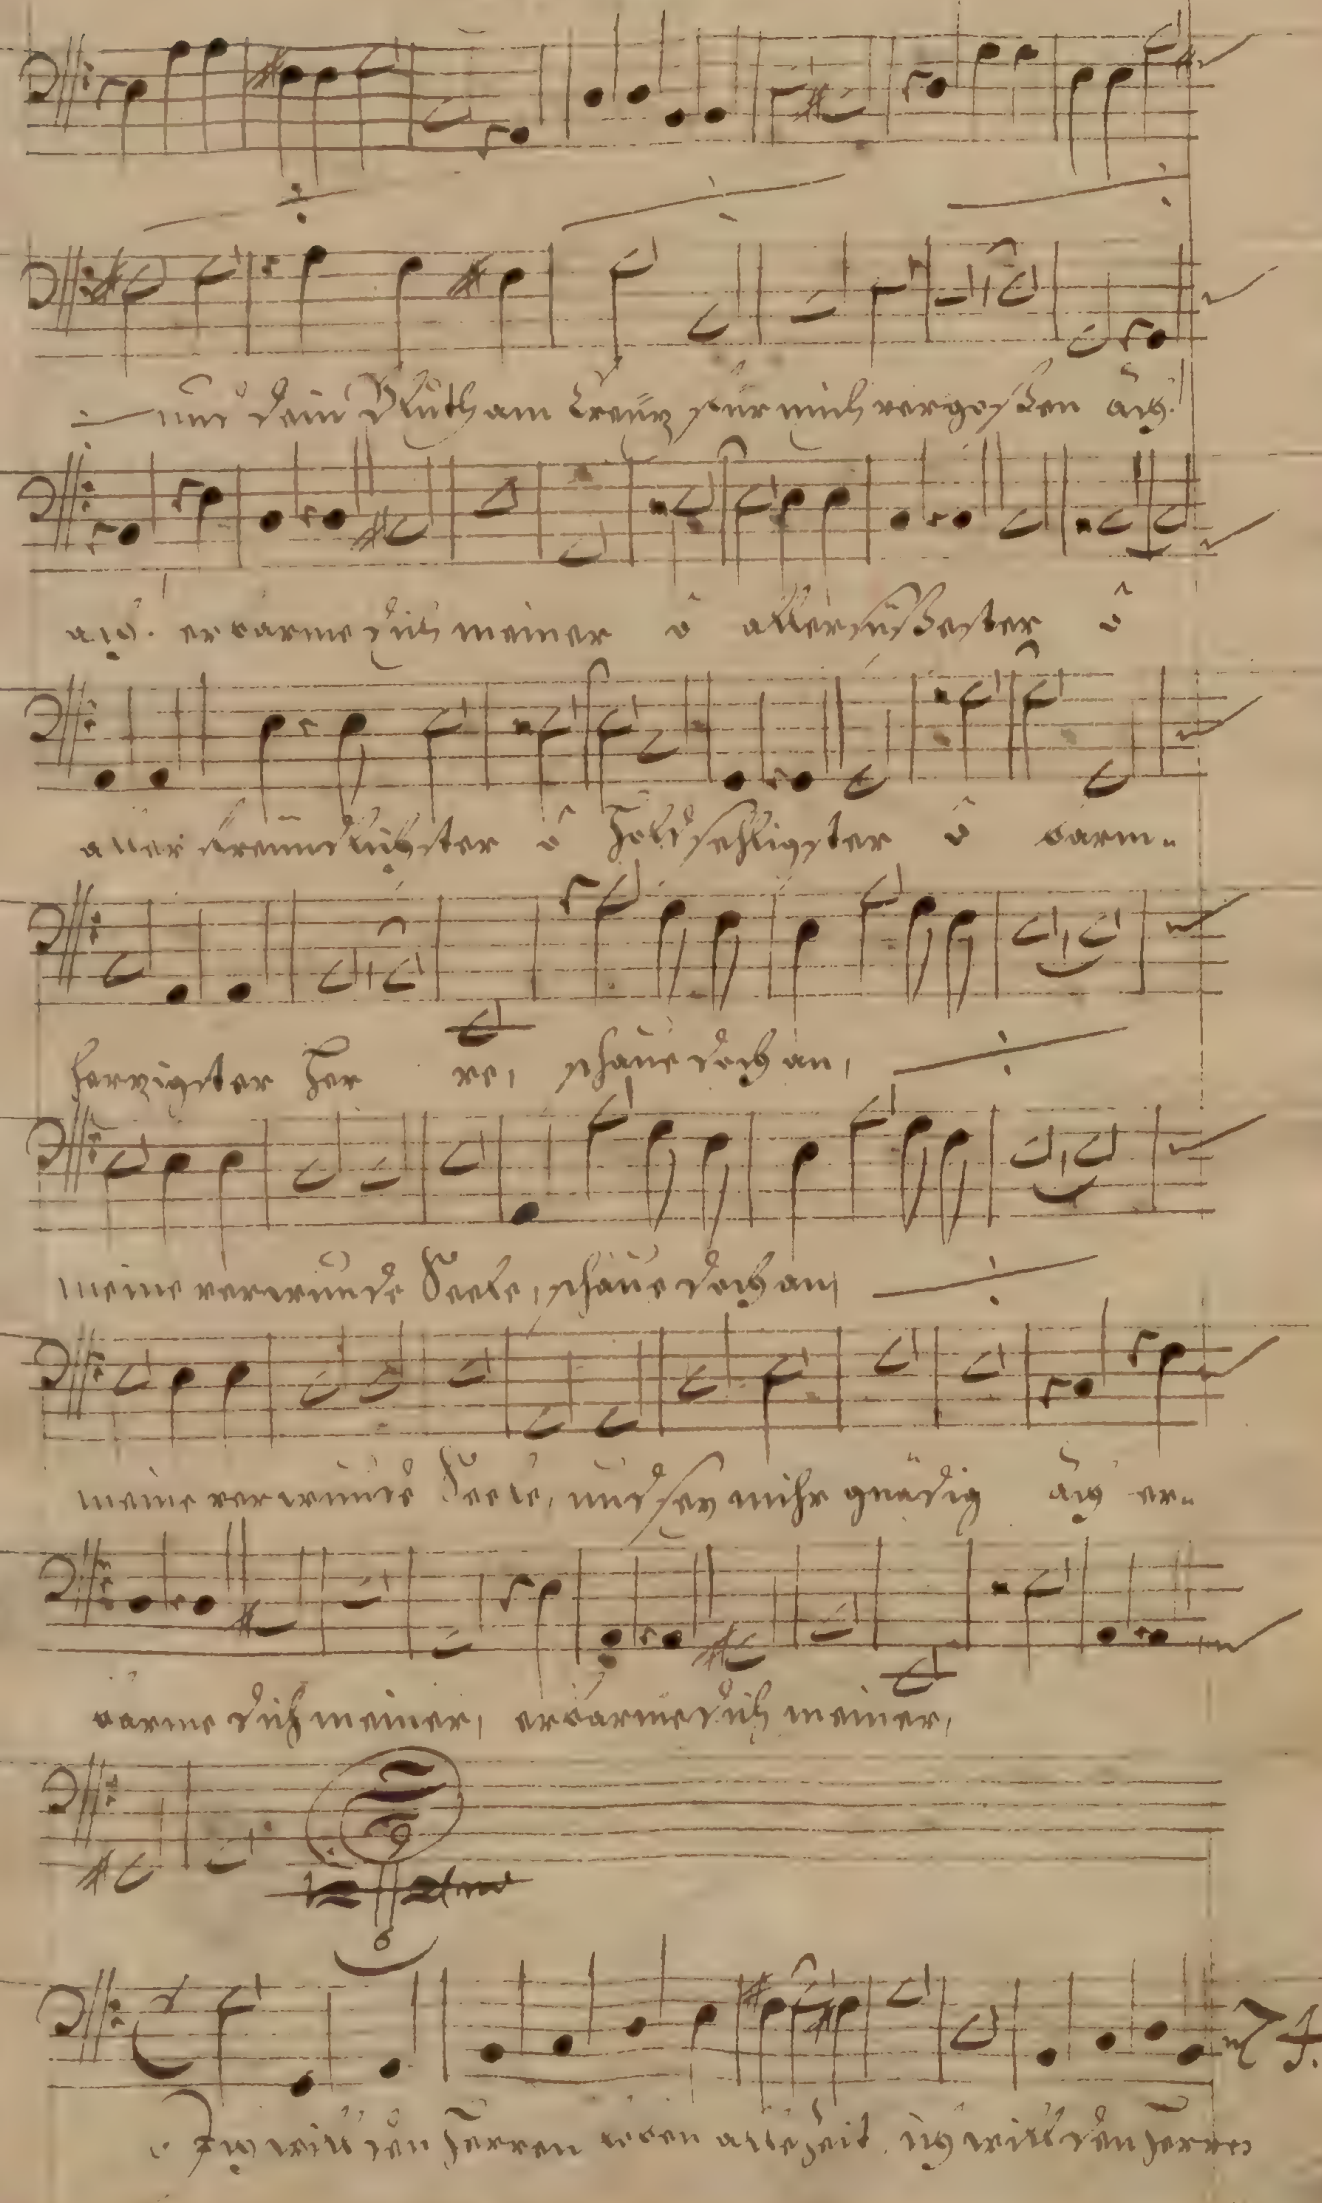 und dein Bluth am Creutz für mich vergoßen ach!
ach. erbarme dich meiner ô allersüßester ô
aller freundlichster ô holdsehligster ô barm-
herzigster Her re, schaue doch an,
meine verwunde Seele, schaue doch an,
meine verwunde Seele, und sey mihr gnädig ach er-
barme dich meiner, erbarme dich meiner,
Ich will den Herren loben allezeit. ich will den Herren